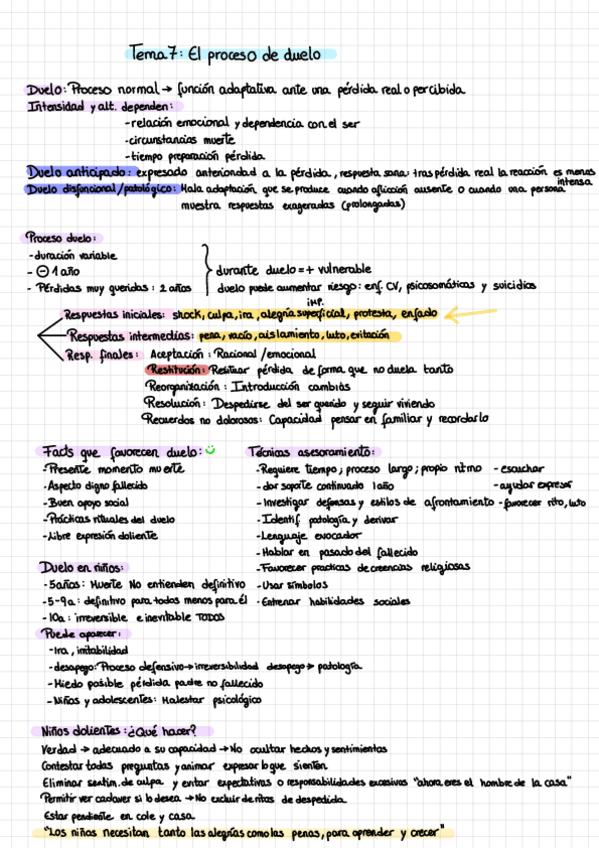 Tema 7: El proceso de duelo
Duelo: Proceso normal → función adaptativa ante una pérdida real o percibida
Intensidad y alt. dependen:
- relación emocional y dependencia con el ser
- circunstancias muerte
- tiempo preparación pérdida
Duelo anticipado: expresado anterioridad a la pérdida, respuesta sana: tras pérdida real la reacción es menos intensa
Duelo disfuncional/patológico: Mala adaptación que se produce cuando aflicción ausente o cuando una persona
muestra respuestas exageradas (prolongadas)
Proceso duelo:
- duración variable
- ⊖ 1 año
- Pérdidas muy queridas: 2 años
durante duelo = + vulnerable
duelo puede aumentar riesgo: enf. CV, psicosomáticas y suicidios
IMP.
Respuestas iniciales: shock, culpa, ira, alegría superficial, protesta, enfado
Respuestas intermedias: pena, vacío, aislamiento, luto, evitación
Resp. finales: Aceptación: Racional/emocional
Restitución: Resituar pérdida de forma que no duela tanto
Reorganización: Introducción cambios
Resolución: Despedirse del ser querido y seguir viviendo
Recuerdos no dolorosos: Capacidad pensar en familiar y recordarlo
Facts que favorecen duelo:
- Presente momento muerte
- Aspecto digno fallecido
- Buen apoyo social
- Prácticas rituales del duelo
- Libre expresión doliente
Técnicas asesoramiento:
- Requiere tiempo; proceso largo; propio ritmo
- dar soporte continuado 1 año
- Investigar defensas y estilos de afrontamiento
- Identif. patología y derivar
- Lenguaje evocador
- Hablar en pasado del fallecido
- Favorecer practicas de creencias religiosas
- Usar símbolos
- Entrenar habilidades sociales
- escuchar
- ayudar expresar
- favorecer rito, luto
Duelo en niños:
- 5 años: Muerte No entienden definitivo
- 5-9a: definitivo para todos menos para él
- 10a: irreversible e inevitable TODOS
Puede aparecer:
- Ira, irritabilidad
- desapego: Proceso defensivo → irreversibilidad desapego → patología
- Miedo posible pérdida padre no fallecido
- Niños y adolescentes: Malestar psicológico
Niños dolientes: ¿Qué hacer?
Verdad → adecuado a su capacidad → No ocultar hechos y sentimientos
Contestar todas preguntas y animar expresar lo que sienten
Eliminar sentim. de culpa y evitar expectativas o responsabilidades excesivas "ahora eres el hombre de la casa"
Permitir ver cadaver si lo desea → No excluir de ritos de despedida.
Estar pendiente en cole y casa
"Los niños necesitan tanto las alegrías como las penas, para aprender y crecer"